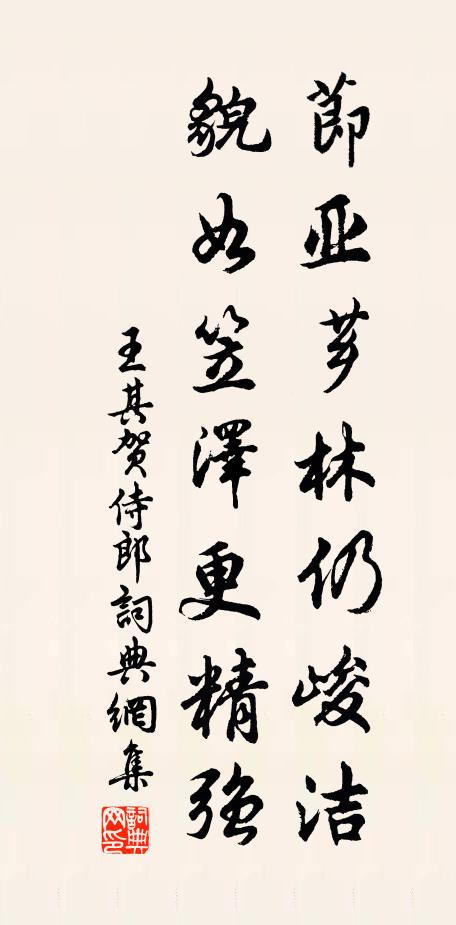 節亚芗林仍峻洁
貌如笠澤更精强
王其贺侍郎詞典網集
詞典网印